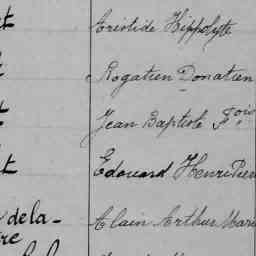 Aristide Hippolyte
Rogatien Donatien
Jean Baptiste
Edouard Henri Pier
de la -
Alain Arthur Mari
re